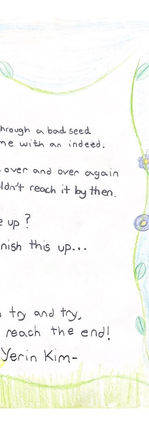 hrough a bad seed
me with an indeed.
over and over again
ldn't reach it by then.
e up?
nish this up...
try and try,
reach the end!
Yerin Kim-